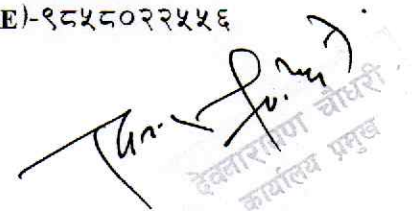 E)-९८५८०२२५५६
देवनारायण चौधरी
कार्यालय प्रमुख